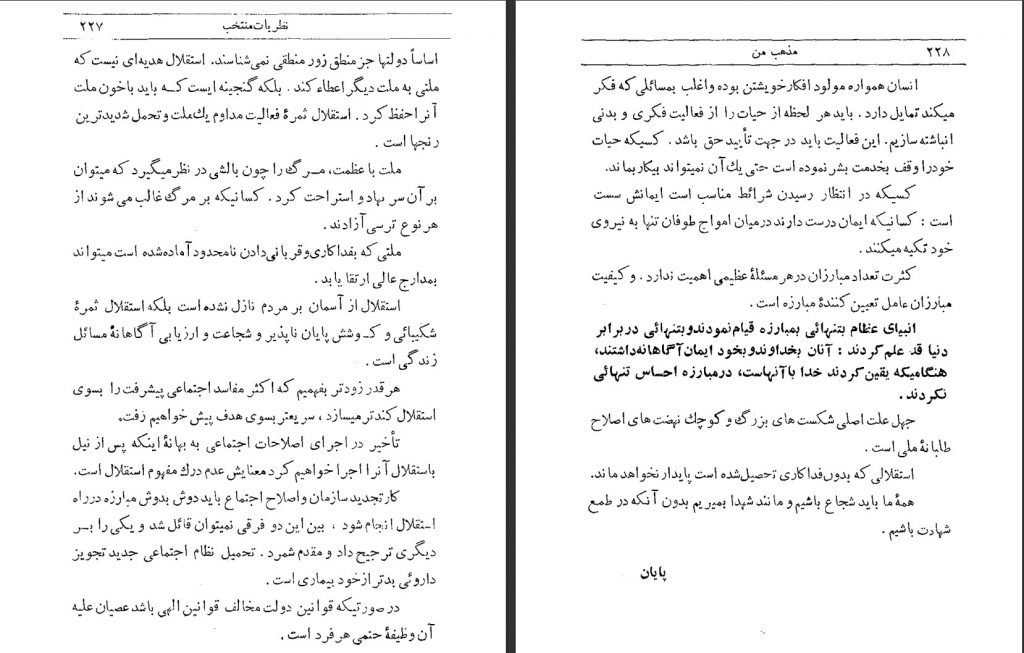 نظریات منتخب ۲۲۷
اساساً دولتها جز منطق زور منطقی نمی‌شناسند. استقلال هدیه‌ای نیست که
ملتی به ملت دیگر اعطاء کند . بلکه گنجینه ایست کـه باید باخون ملت
آنرا حفظ کرد . استقلال ثمرهٔ فعالیت مداوم یك ملت و تحمل شدیدترین
رنجها است .
ملت با عظمت، مـرگ را چون بالشی در نظر میگیرد که میتوان
بر آن سر نهاد و استراحت کرد . کسانیکه بر مرگ غالب می شوند از
هر نوع ترسی آزادند .
ملتی که بفداکاری و قربانی‌دادن نامحدود آماده شده است میتواند
بمدارج عالی ارتقا یابد .
استقلال از آسمان بر مردم نازل نشده است بلکه استقلال ثمرهٔ
شکیبائی و کـوشش پایان ناپذیر و شجاعت و ارزیابی آگاهانهٔ مسائل
زندگی است .
هر قدر زودتر بفهمیم که اکثر مفاسد اجتماعی پیشرفت را بسوی
استقلال کندتر میسازد ، سریعتر بسوی هدف پیش خواهیم رفت.
تأخیر در اجرای اصلاحات اجتماعی به بهانهٔ اینکه پس از نیل
باستقلال آنرا اجرا خواهیم کرد معنایش عدم درك مفهوم استقلال است.
کار تجدید سازمان و اصلاح اجتماع باید دوش بدوش مبارزه در راه
استقلال انجام شود ، بین این دو فرقی نمیتوان قائل شد و یکی را بـر
دیگری ترجیح داد و مقدم شمرد . تحمیل نظام اجتماعی جدید تجویز
داروئی بدتر از خود بیماری است .
در صورتیکه قوانین دولت مخالف قوانین الهی باشد عصیان علیه
آن وظیفهٔ حتمی هر فرد است .
۲۲۸ مذهب من
انسان همواره مولود افکار خویشتن بوده و اغلب بمسائلی که فکر
میکند تمایل دارد . باید هر لحظه از حیات را از فعالیت فکری و بدنی
انباشته سازیم. این فعالیت باید در جهت تأیید حق باشد . کسیکه حیات
خودرا وقف بخدمت بشر نموده است حتی یك آن نمیتواند بیکار بماند.
کسیکه در انتظار رسیدن شرائط مناسب است ایمانش سست
است : کسانیکه ایمان درست دارند درمیان امواج طوفان تنها به نیروی
خود تکیه میکنند .
کثرت تعداد مبارزان در هر مسئلهٔ عظیمی اهمیت ندارد . و کیفیت
مبارزان عامل تعیین کنندهٔ مبارزه است .
انبیای عظام بتنهائی بمبارزه قیام نمودند و بتنهائی در برابر
دنیا قد علم کردند : آنان بخداوند و بخود ایمان آگاهانه داشتند،
هنگامیکه یقین کردند خدا با آنهاست، در مبارزه احساس تنهائی
نکردند .
جهل علت اصلی شکست های بزرگ و کوچك نهضت های اصلاح
طلبانهٔ ملی است .
استقلالی که بدون فداکاری تحصیل شده است پایدار نخواهد ماند.
همهٔ ما باید شجاع باشیم و مانند شهدا بمیریم بدون آنکه در طمع
شهادت باشیم .
پایان